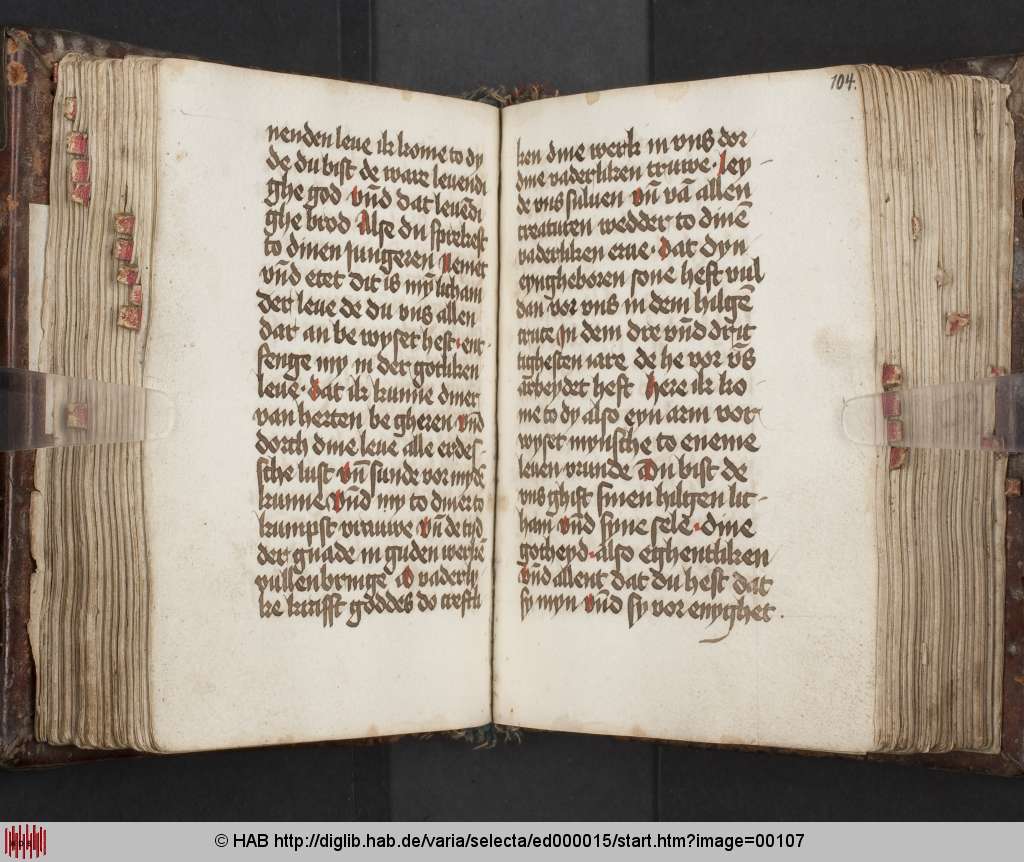 nenden leue ik kome to dy
de du bist de ware leuendi
ghe god vn̄d dat leuēdi
ghe brod Alse du sprekest
to dinen Jungeren Nemet
vn̄d etet dit is mȳ licham
der leue de du vns allen
dar an be wyset hest · ent
fenge my in der gotliken
leue · dat ik kunne diner
van herten be gheren vn̄d
dorch dine leue alle erdes
sche lust vn̄ sunde vor mydē
kunne vn̄d my to diner to
kumpst vrauwe vn̄ de tyd
der gnade in guden werkē
vullenbringe O vaderly
ke krafft goddes do
104.
ken dine werk in vns dor
dine vaderliken truwe · ley
de vns suluen vn̄ vā allen
creaturen wedder to dinē
vaderliken erue · dat dyn
eyngheboren sone heft vul
dan vor vns in dem hilgē
cruce in dem dre vn̄d drit
tighesten iare de he vor v̄s
arbeydet heft here ik ko
me to dy also eyn arm vor
wyset mynsche to eneme
leuen vrunde Du bist de
vns ghift sinen hilgen lic
ham vn̄d syne sele · dine
gotheyd · also eghentliken
vn̄d allent dat du hest dat
sy myn vn̄d sy vor enyghet ·
© HAB http://diglib.hab.de/varia/selecta/ed000015/start.htm?image=00107